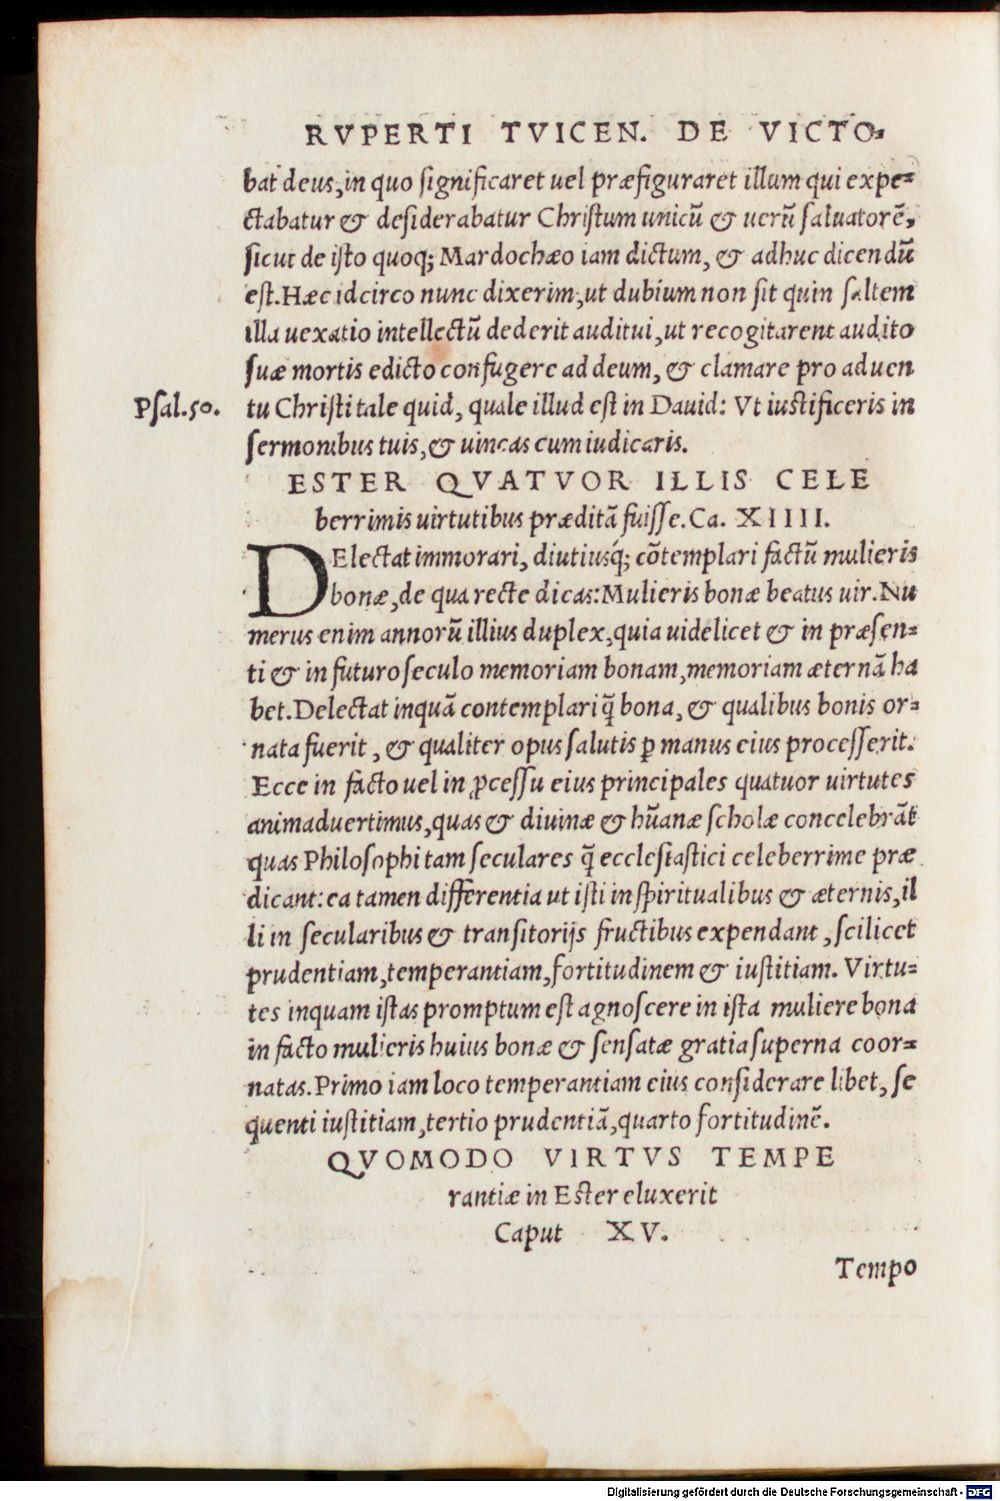 RVPERTI TVICEN. DE VICTO-
bat deus, in quo significaret uel præfiguraret illum qui expe-
ctabatur & desiderabatur Christum unicū & uerū saluatorē,
sicut de isto quoq; Mardochæo iam dictum, & adhuc dicendū
est. Hæc idcirco nunc dixerim, ut dubium non sit quin saltem
illa uexatio intellectū dederit auditui, ut recogitarent audito
suæ mortis edicto confugere ad deum, & clamare pro aduen
Psal.50. tu Christi tale quid, quale illud est in Dauid: Vt iustificeris in
sermonibus tuis, & uincas cum iudicaris.
ESTER QVATVOR ILLIS CELE
berrimis uirtutibus præditā fuisse. Ca. XIIII.
DElectat immorari, diutiusq́; cōtemplari factū mulieris
bonæ, de qua recte dicas: Mulieris bonæ beatus uir. Nu
merus enim annorū illius duplex, quia uidelicet & in præsen-
ti & in futuro seculo memoriam bonam, memoriam æternā ha
bet. Delectat inquā contemplari q̄ bona, & qualibus bonis or-
nata fuerit, & qualiter opus salutis ꝑ manus eius processerit.
Ecce in facto uel in ꝓcessu eius principales quatuor uirtutes
animaduertimus, quas & diuinæ & hūanæ scholæ concelebrāt
quas Philosophi tam seculares q̄ ecclesiastici celeberrime præ
dicant: ea tamen differentia ut isti in spiritualibus & æternis, il
li in secularibus & transitorijs fructibus expendant, scilicet
prudentiam, temperantiam, fortitudinem & iustitiam. Virtu-
tes inquam istas promptum est agnoscere in ista muliere bona
in facto mulieris huius bonæ & sensatæ gratia superna coor-
natas. Primo iam loco temperantiam eius considerare libet, se
quenti iustitiam, tertio prudentiā, quarto fortitudinē.
QVOMODO VIRTVS TEMPE
rantiæ in Ester eluxerit
Caput XV.
Tempo
Digitalisierung gefördert durch die Deutsche Forschungsgemeinschaft - DFG